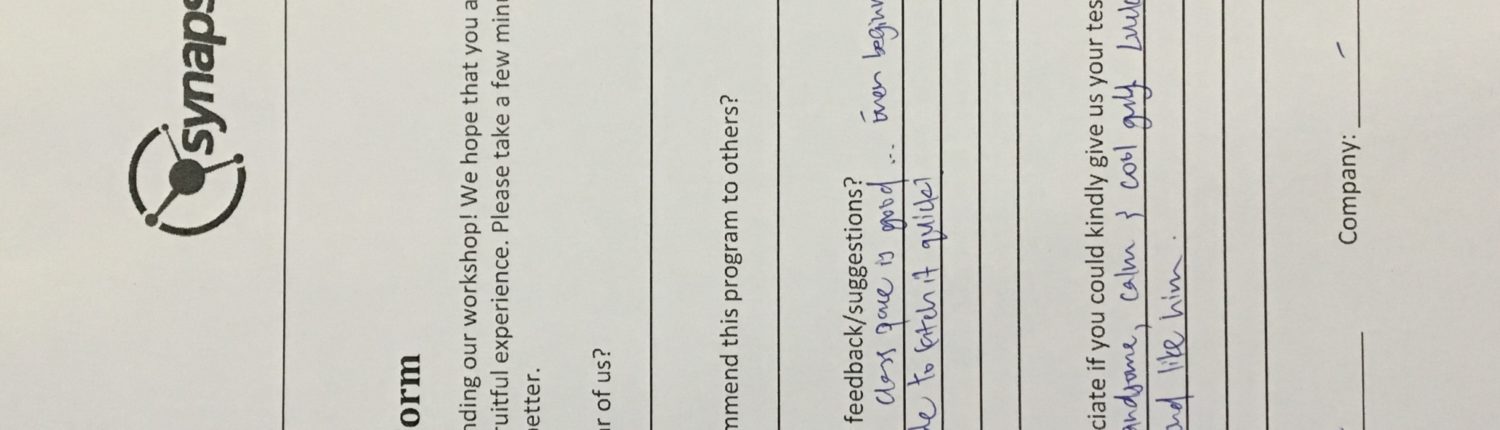 synaps
orm
nding our workshop! We hope that you a
ruitful experience. Please take a few minu
better.
ar of us?
mmend this program to others?
feedback/suggestions?
class pace is good ... even beginn
le to catch it quickl
ciate if you could kindly give us your tes
andsome, calm & cool guy
and like him.
Company: -